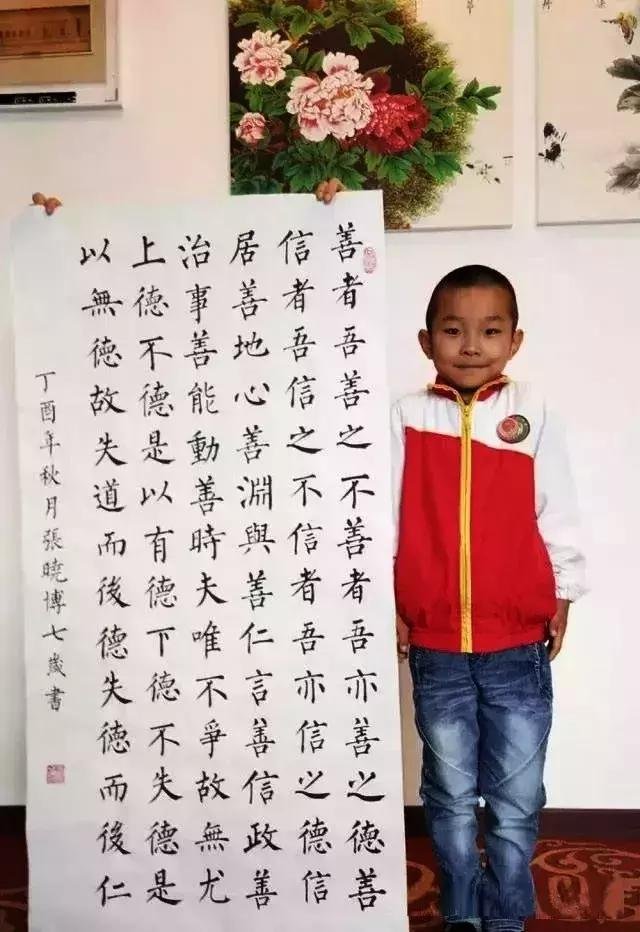 善者吾善之不善者吾亦善之德善
信者吾信之不信者吾亦信之德信
居善地心善淵與善仁言善信政善
治事善能動善時夫唯不爭故無尤
上德不德是以有德下德不失德是
以無德故失道而後德失德而後仁
丁酉年秋月張曉博七歲書